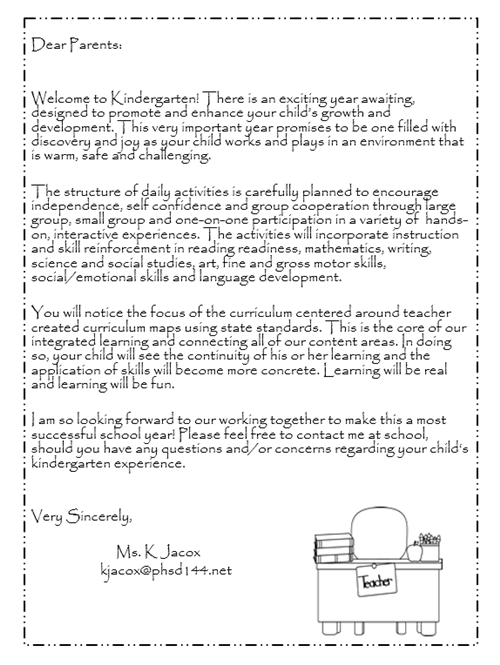 Dear Parents:
Welcome to Kindergarten! There is an exciting year awaiting,
designed to promote and enhance your child's growth and
development. This very important year promises to be one filled with
discovery and joy as your child works and plays in an environment that
is warm, safe and challenging.
The structure of daily activities is carefully planned to encourage
independence, self confidence and group cooperation through large
group, small group and one-on-one participation in a variety of hands-
on, interactive experiences. The activities will incorporate instruction
and skill reinforcement in reading readiness, mathematics, writing,
science and social studies, art, fine and gross motor skills,
social/emotional skills and language development.
You will notice the focus of the curriculum centered around teacher
created curriculum maps using state standards. This is the core of our
integrated learning and connecting all of our content areas. In doing
so, your child will see the continuity of his or her learning and the
application of skills will become more concrete. Learning will be real
and learning will be fun.
I am so looking forward to our working together to make this a most
successful school year! Please feel free to contact me at school,
should you have any questions and/or concerns regarding your child's
kindergarten experience.
Very Sincerely,
Ms. K Jacox
kjacox@phsd144.net
Teacher